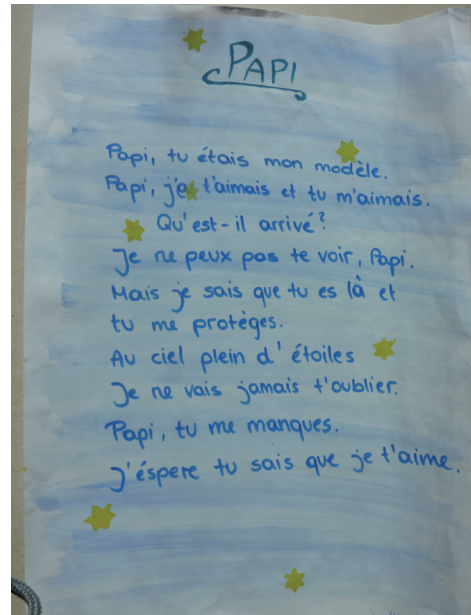 PAPI
Papi, tu étais mon modèle.
Papi, j'e t'aimais et tu m'aimais.
Qu'est-il arrivé?
Je ne peux pas te voir, Papi.
Mais je sais que tu es là et
tu me protèges.
Au ciel plein d'étoiles
Je ne vais jamais t'oublier.
Papi, tu me manques.
J'éspere tu sais que je t'aime.